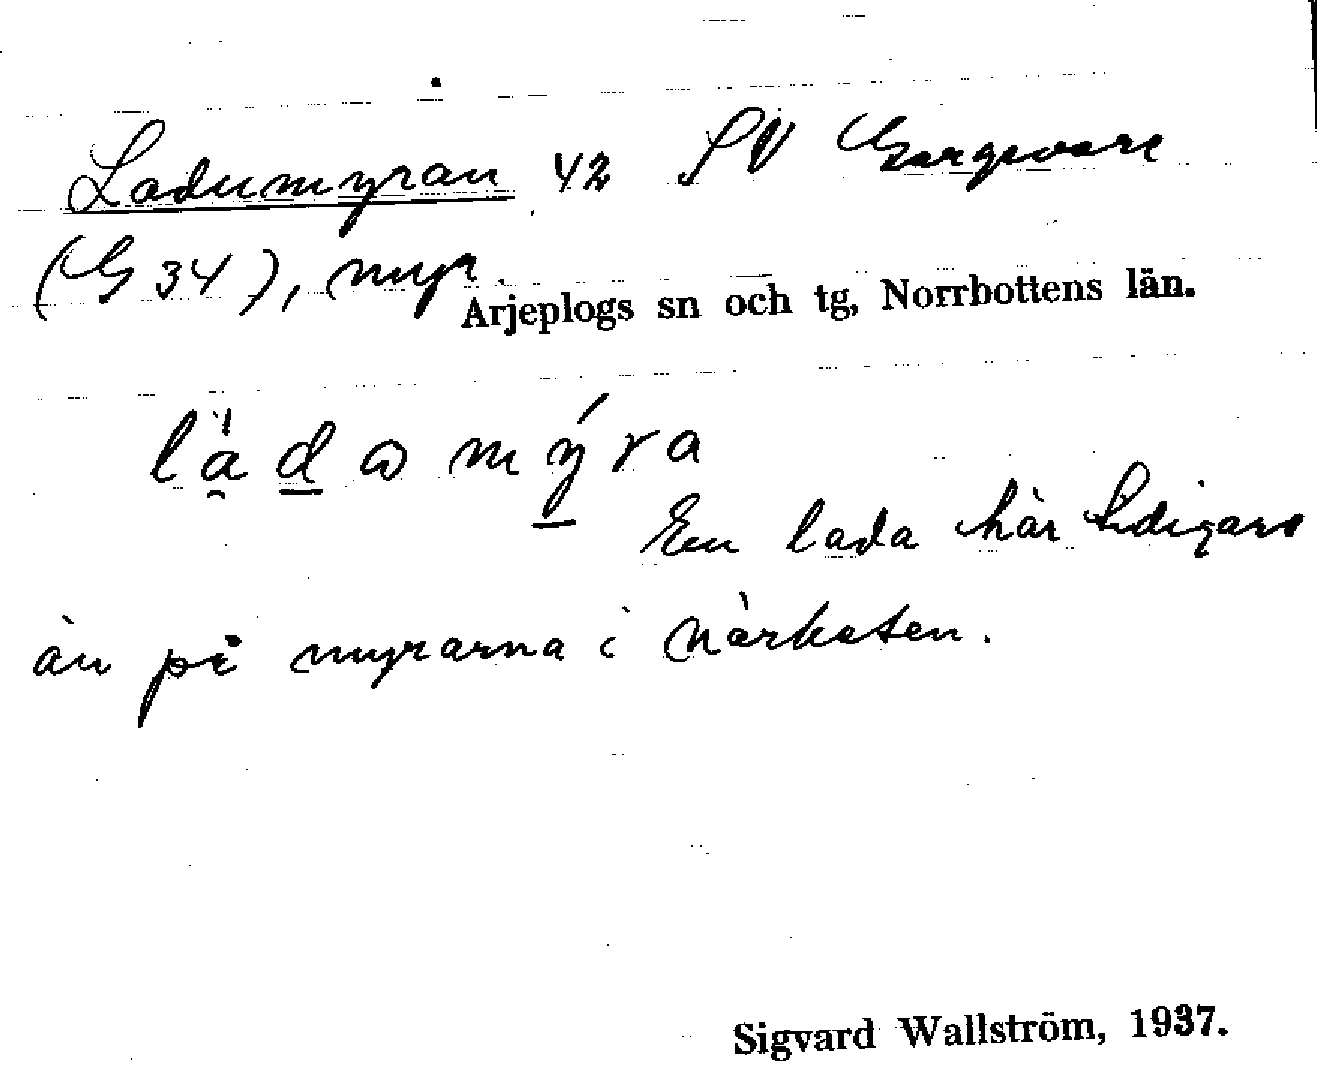 Ladumyran 42 SV Gargvare
(G 34), myr.
Arjeplogs sn och tg, Norrbottens län.
lädamýra
En lada här tidigare
än på myrarna i närheten.
Sigvard Wallström, 1937.